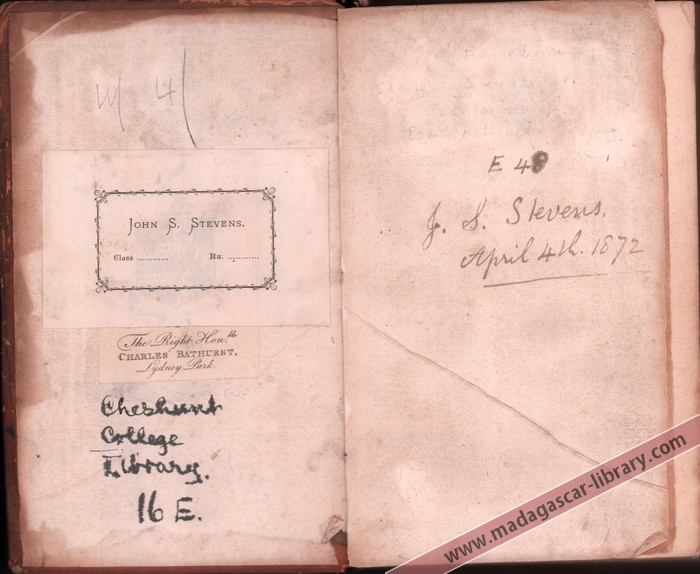 W 4/
JOHN S. STEVENS.
Class ........... No. ...........
The Right Hon.ble
CHARLES BATHURST,
Lydney Park
Cheshunt
College
Library.
16 E.
E 48
J. S. Stevens.
April 4th. 1872
www.madagascar-library.com